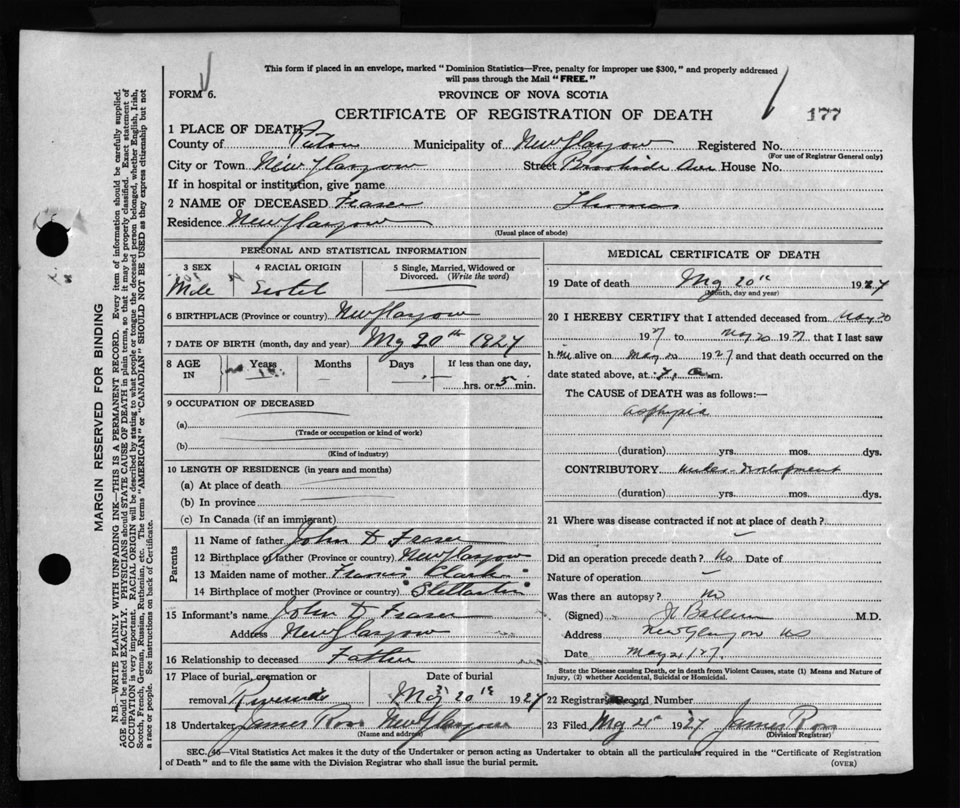 This form if placed in an envelope, marked "Dominion Statistics—Free, penalty for improper use $300," and properly addressed
will pass through the Mail "FREE."
FORM 6.
PROVINCE OF NOVA SCOTIA
CERTIFICATE OF REGISTRATION OF DEATH
177
1 PLACE OF DEATH
County of Pictou Municipality of New Glasgow Registered No.
(For use of Registrar General only)
City or Town New Glasgow Street Brookside Ave House No.
If in hospital or institution, give name
2 NAME OF DECEASED Fraser Thomas
Residence New Glasgow
(Usual place of abode)
PERSONAL AND STATISTICAL INFORMATION
3 SEX 4 RACIAL ORIGIN 5 Single, Married, Widowed or Divorced. (Write the word)
Male Scotch
6 BIRTHPLACE (Province or country) New Glasgow
7 DATE OF BIRTH (month, day and year) May 20th 1927
8 AGE IN Years Months Days If less than one day,
hrs. or 5 min.
9 OCCUPATION OF DECEASED
(a)
(Trade or occupation or kind of work)
(b)
(Kind of industry)
10 LENGTH OF RESIDENCE (in years and months)
(a) At place of death
(b) In province
(c) In Canada (if an immigrant)
Parents
11 Name of father John D Fraser
12 Birthplace of father (Province or country) New Glasgow
13 Maiden name of mother Francis Clarke
14 Birthplace of mother (Province or country)
15 Informant's name John D Fraser
Address New Glasgow
16 Relationship to deceased Father
17 Place of burial, cremation or Date of burial
removal Riverside May 20th 1927
18 Undertaker James Ross New Glasgow
(Name and address)
MEDICAL CERTIFICATE OF DEATH
19 Date of death May 20th 1927
(Month, day and year)
20 I HEREBY CERTIFY that I attended deceased from May 20
1927 to May 20 1927 that I last saw
h im alive on May 20 1927 and that death occurred on the
date stated above, at a m.
The CAUSE of DEATH was as follows:—
asphyxia
(duration) yrs. mos. dys.
CONTRIBUTORY under-development
(duration) yrs. mos. dys.
21 Where was disease contracted if not at place of death?
Did an operation precede death? No Date of
Nature of operation
Was there an autopsy? no
(Signed) M.D.
Address New Glasgow NS
Date May 21/27.
State the Disease causing Death, or in death from Violent Causes, state (1) Means and Nature of
Injury, (2) whether Accidental, Suicidal or Homicidal.
22 Registrar Record Number
23 Filed May 21st 1927 James Ross
(Division Registrar)
SEC. 40—Vital Statistics Act makes it the duty of the Undertaker or person acting as Undertaker to obtain all the particulars required in the "Certificate of Registration
of Death" and to file the same with the Division Registrar who shall issue the burial permit. (OVER)
MARGIN RESERVED FOR BINDING
N.B.—WRITE PLAINLY WITH UNFADING INK—THIS IS A PERMANENT RECORD. Every item of information should be carefully supplied.
AGE should be stated EXACTLY. PHYSICIANS should STATE CAUSE OF DEATH in plain terms, so that it may be properly classified. Exact statement of
OCCUPATION is very important. RACIAL ORIGIN will be described by stating to what people or tongue the deceased person belonged, whether English, Irish,
Scotch, French, German, Russian, Ruthenian, etc. The terms "AMERICAN" or "CANADIAN" SHOULD NOT BE USED as they express citizenship but not
a race or people. See instructions on back of Certificate.